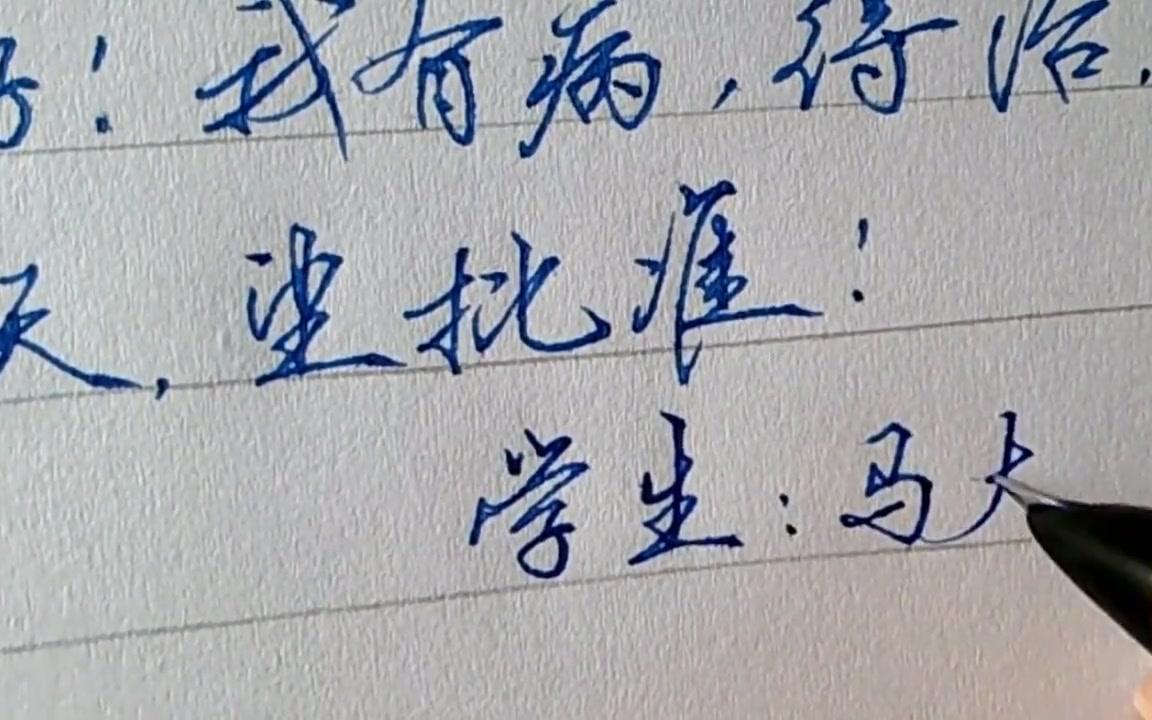 好！我有病，得治，
天，望批准！
学生：马大